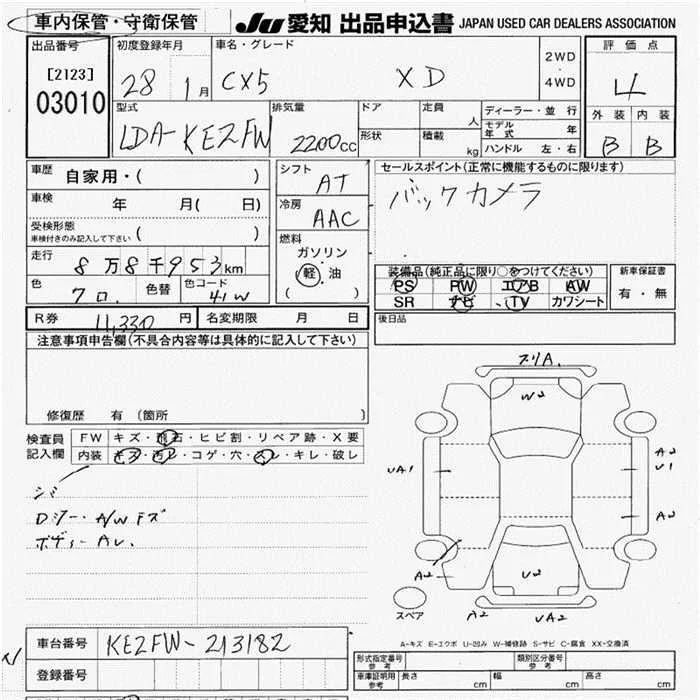 車内保管・守衛保管
JU 愛知 出品申込書 JAPAN USED CAR DEALERS ASSOCIATION
出品番号
[2123]
03010
初度登録年月
28 1月
車名・グレード
CX5 XD
2WD
・
4WD
評価点
4
外装 内装
B B
型式
LDA-KE2FW
排気量
2200cc
ドア
形状
定員
人
積載
kg
ディーラー・並行
モデル年式 年
ハンドル 左・右
車歴 自家用・( )
車検 年 月( 日)
受検形態
車検付きのみ記入して下さい ( )
走行 8万8千953km
色 クロ 色替 色コード 41W
シフト
AT
冷房
AAC
燃料
ガソリン
軽・油
( )
セールスポイント(正常に機能するものに限ります)
バックカメラ
装備品(純正品に限り○をつけてください)
PS PW エアB AW
SR ナビ TV カワシート
新車保証書
有・無
後日品
R券 11,330円 名変期限 月 日
注意事項申告欄(不具合内容等は具体的に記入して下さい)
修復歴 有 (箇所 )
検査員
記入欄
FW キズ・飛石・ヒビ割・リペア跡・X要
内装 キズ・汚レ・コゲ・穴・スレ・キレ・破レ
A/Wキズ
スリA.
W2
UA1
A2
U1
A2
A2
U2
A2
UA2
スペア
A-キズ E-エクボ U-凹み W-補修跡 S-サビ C-腐食 XX-交換済
車台番号 KE2FW-213182
登録番号
形式指定番号
参考
類別区分番号
参考
車庫証明用
参考
長さ cm 幅 cm 高さ cm